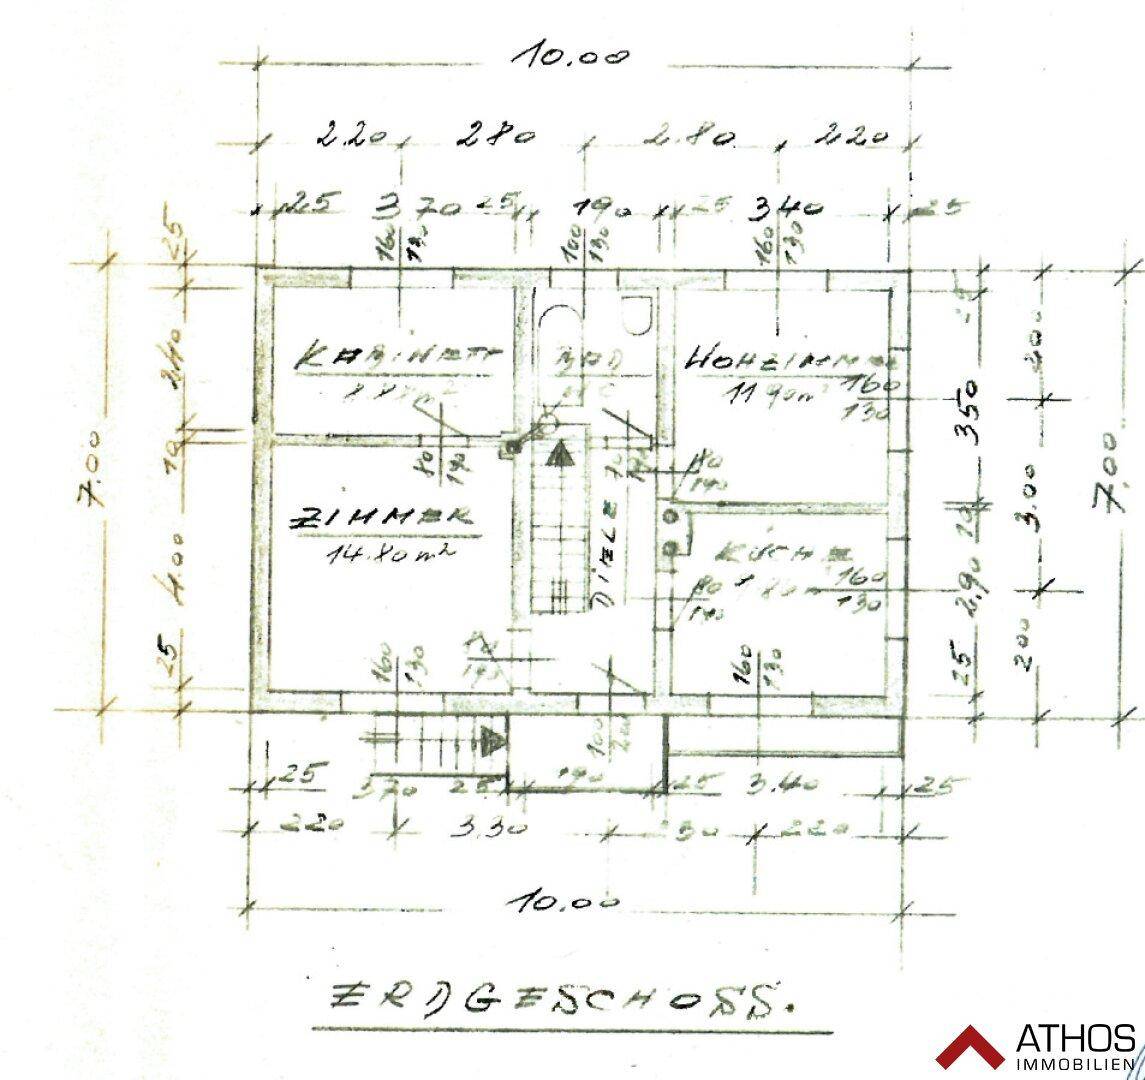 10.00
2.20 280 2.80 220
25 370 25 190 25 340 25
160
130
100
130
160
130
25
240
10
400
25
7.00
KABINETT
BAD
WOHZIMMER
11.90m²
160
130
80
190
70
80
190
ZIMMER
14.80m²
DIELE
KÜCHE
160
130
80
190
190
160
130
160
130
100
200
25
350
10
2.90
25
200
3.00
200
7.00
25 370 25 190 25 3.40 25
220 3.30 220
10.00
ERDGESCHOSS.
ATHOS
IMMOBILIEN